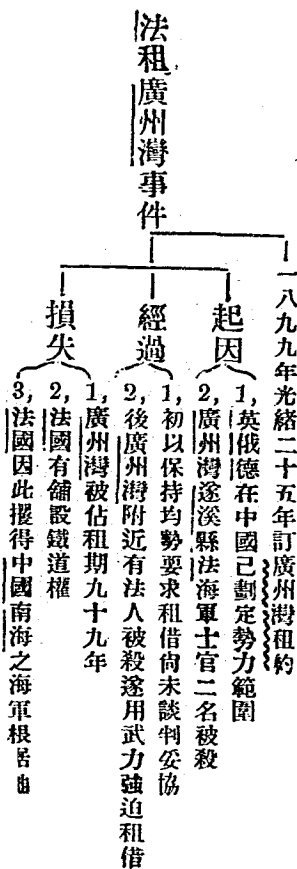 法租廣州灣事件
一八九九年光緒二十五年訂廣州灣租約
起因
1,英俄德在中國已劃定勢力範圍
2,廣州灣遂溪縣法海軍士官二名被殺
經過
1,初以保持均勢要求租借尙未談判妥協
2,後廣州灣附近有法人被殺遂用武力強迫租借
損失
1,廣州灣被佔租期九十九年
2,法國有舖設鐵道權
3,法國因此攫得中國南海之海軍根